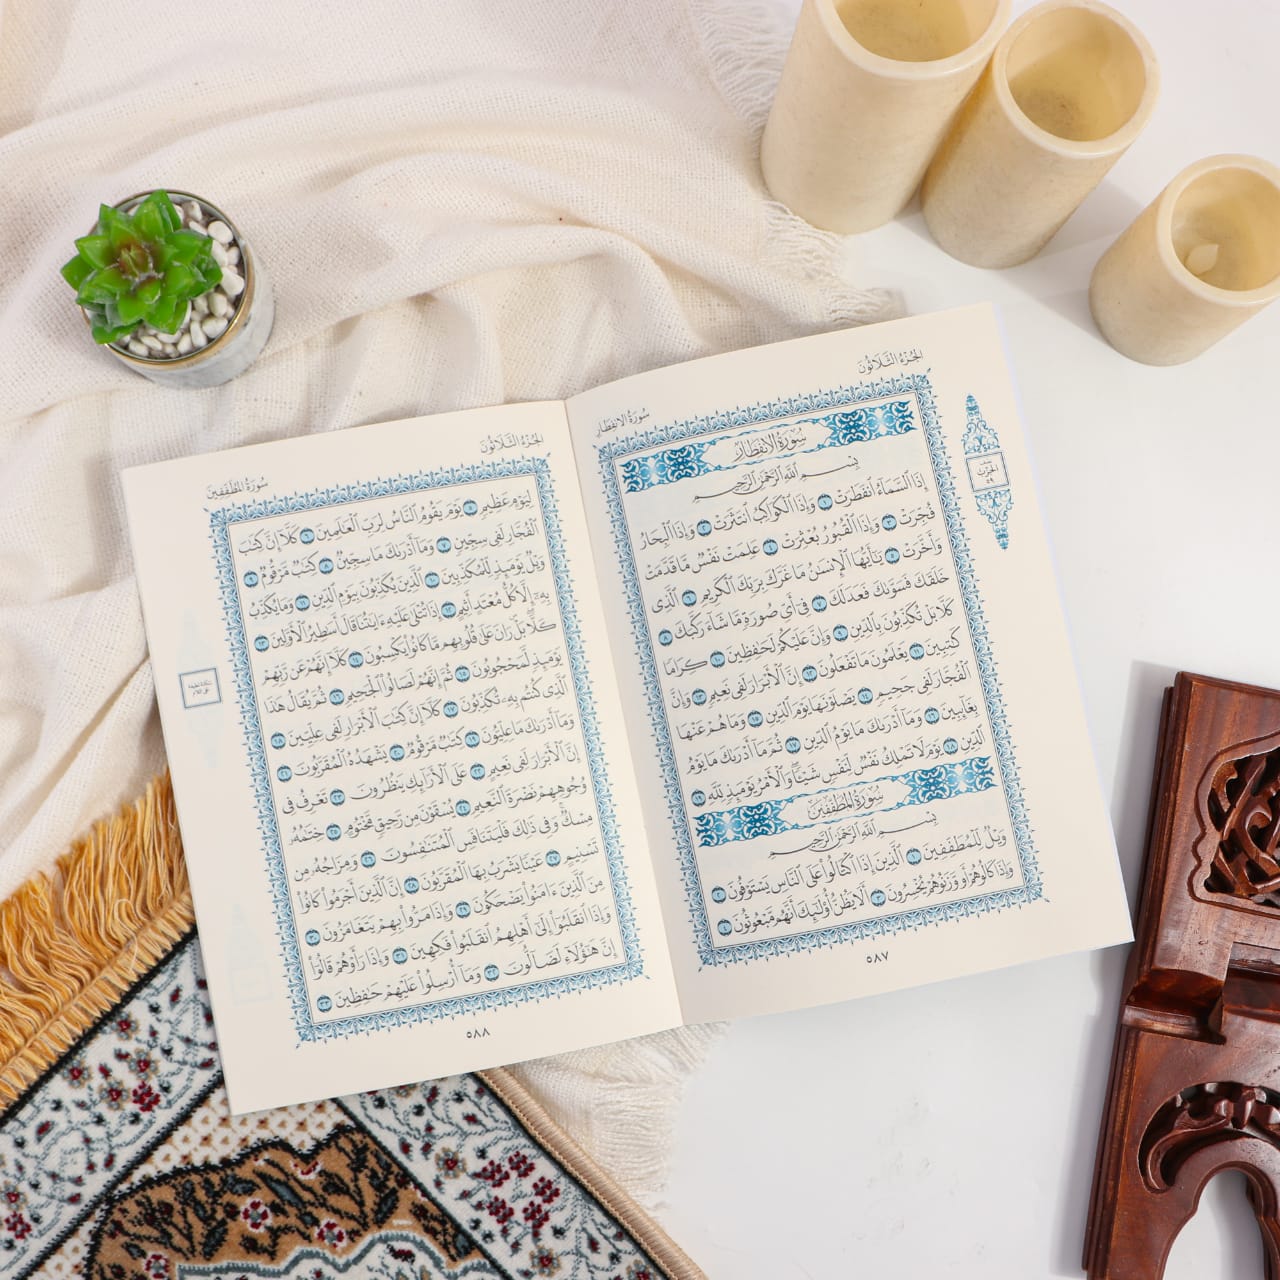 الجُزْءُ الثَّلَاثُونَ
سُورَةُ الانفِطَارِ
سُورَةُ الانفِطَارِ
بِسْمِ اللَّهِ الرَّحْمَٰنِ الرَّحِيمِ
إِذَا ٱلسَّمَآءُ ٱنفَطَرَتْ ١ وَإِذَا ٱلْكَوَاكِبُ ٱنتَثَرَتْ ٢ وَإِذَا ٱلْبِحَارُ
فُجِّرَتْ ٣ وَإِذَا ٱلْقُبُورُ بُعْثِرَتْ ٤ عَلِمَتْ نَفْسٌ مَّا قَدَّمَتْ
وَأَخَّرَتْ ٥ يَٰٓأَيُّهَا ٱلْإِنسَٰنُ مَا غَرَّكَ بِرَبِّكَ ٱلْكَرِيمِ ٦ ٱلَّذِى
خَلَقَكَ فَسَوَّىٰكَ فَعَدَلَكَ ٧ فِىٓ أَىِّ صُورَةٍ مَّا شَآءَ رَكَّبَكَ ٨
كَلَّا بَلْ تُكَذِّبُونَ بِٱلدِّينِ ٩ وَإِنَّ عَلَيْكُمْ لَحَٰفِظِينَ ١٠ كِرَامًا
كَٰتِبِينَ ١١ يَعْلَمُونَ مَا تَفْعَلُونَ ١٢ إِنَّ ٱلْأَبْرَارَ لَفِى نَعِيمٍ ١٣ وَإِنَّ
ٱلْفُجَّارَ لَفِى جَحِيمٍ ١٤ يَصْلَوْنَهَا يَوْمَ ٱلدِّينِ ١٥ وَمَا هُمْ عَنْهَا
بِغَآئِبِينَ ١٦ وَمَآ أَدْرَىٰكَ مَا يَوْمُ ٱلدِّينِ ١٧ ثُمَّ مَآ أَدْرَىٰكَ مَا يَوْمُ
ٱلدِّينِ ١٨ يَوْمَ لَا تَمْلِكُ نَفْسٌ لِّنَفْسٍ شَيْـًٔا ۖ وَٱلْأَمْرُ يَوْمَئِذٍ لِّلَّهِ ١٩
سُورَةُ المُطَفِّفِينَ
بِسْمِ اللَّهِ الرَّحْمَٰنِ الرَّحِيمِ
وَيْلٌ لِّلْمُطَفِّفِينَ ١ ٱلَّذِينَ إِذَا ٱكْتَالُوا۟ عَلَى ٱلنَّاسِ يَسْتَوْفُونَ ٢
وَإِذَا كَالُوهُمْ أَو وَّزَنُوهُمْ يُخْسِرُونَ ٣ أَلَا يَظُنُّ أُو۟لَٰٓئِكَ أَنَّهُم مَّبْعُوثُونَ ٤
٥٨٧
الحِزْب
٥٩
الجُزْءُ الثَّلَاثُونَ
سُورَةُ المُطَفِّفِينَ
لِيَوْمٍ عَظِيمٍ ٥ يَوْمَ يَقُومُ ٱلنَّاسُ لِرَبِّ ٱلْعَٰلَمِينَ ٦ كَلَّآ إِنَّ كِتَٰبَ
ٱلْفُجَّارِ لَفِى سِجِّينٍ ٧ وَمَآ أَدْرَىٰكَ مَا سِجِّينٌ ٨ كِتَٰبٌ مَّرْقُومٌ ٩
وَيْلٌ يَوْمَئِذٍ لِّلْمُكَذِّبِينَ ١٠ ٱلَّذِينَ يُكَذِّبُونَ بِيَوْمِ ٱلدِّينِ ١١ وَمَا يُكَذِّبُ
بِهِۦٓ إِلَّا كُلُّ مُعْتَدٍ أَثِيمٍ ١٢ إِذَا تُتْلَىٰ عَلَيْهِ ءَايَٰتُنَا قَالَ أَسَٰطِيرُ ٱلْأَوَّلِينَ ١٣
كَلَّا ۖ بَلْ ۜ رَانَ عَلَىٰ قُلُوبِهِم مَّا كَانُوا۟ يَكْسِبُونَ ١٤ كَلَّآ إِنَّهُمْ عَن رَّبِّهِمْ
يَوْمَئِذٍ لَّمَحْجُوبُونَ ١٥ ثُمَّ إِنَّهُمْ لَصَالُوا۟ ٱلْجَحِيمِ ١٦ ثُمَّ يُقَالُ هَٰذَا
ٱلَّذِى كُنتُم بِهِۦ تُكَذِّبُونَ ١٧ كَلَّآ إِنَّ كِتَٰبَ ٱلْأَبْرَارِ لَفِى عِلِّيِّينَ ١٨
وَمَآ أَدْرَىٰكَ مَا عِلِّيُّونَ ١٩ كِتَٰبٌ مَّرْقُومٌ ٢٠ يَشْهَدُهُ ٱلْمُقَرَّبُونَ ٢١
إِنَّ ٱلْأَبْرَارَ لَفِى نَعِيمٍ ٢٢ عَلَى ٱلْأَرَآئِكِ يَنظُرُونَ ٢٣ تَعْرِفُ فِى
وُجُوهِهِمْ نَضْرَةَ ٱلنَّعِيمِ ٢٤ يُسْقَوْنَ مِن رَّحِيقٍ مَّخْتُومٍ ٢٥ خِتَٰمُهُۥ
مِسْكٌ ۚ وَفِى ذَٰلِكَ فَلْيَتَنَافَسِ ٱلْمُتَنَٰفِسُونَ ٢٦ وَمِزَاجُهُۥ مِن
تَسْنِيمٍ ٢٧ عَيْنًا يَشْرَبُ بِهَا ٱلْمُقَرَّبُونَ ٢٨ إِنَّ ٱلَّذِينَ أَجْرَمُوا۟ كَانُوا۟
مِنَ ٱلَّذِينَ ءَامَنُوا۟ يَضْحَكُونَ ٢٩ وَإِذَا مَرُّوا۟ بِهِمْ يَتَغَامَزُونَ ٣٠
وَإِذَا ٱنقَلَبُوٓا۟ إِلَىٰٓ أَهْلِهِمُ ٱنقَلَبُوا۟ فَكِهِينَ ٣١ وَإِذَا رَأَوْهُمْ قَالُوٓا۟
إِنَّ هَٰٓؤُلَآءِ لَضَآلُّونَ ٣٢ وَمَآ أُرْسِلُوا۟ عَلَيْهِمْ حَٰفِظِينَ ٣٣
٥٨٨